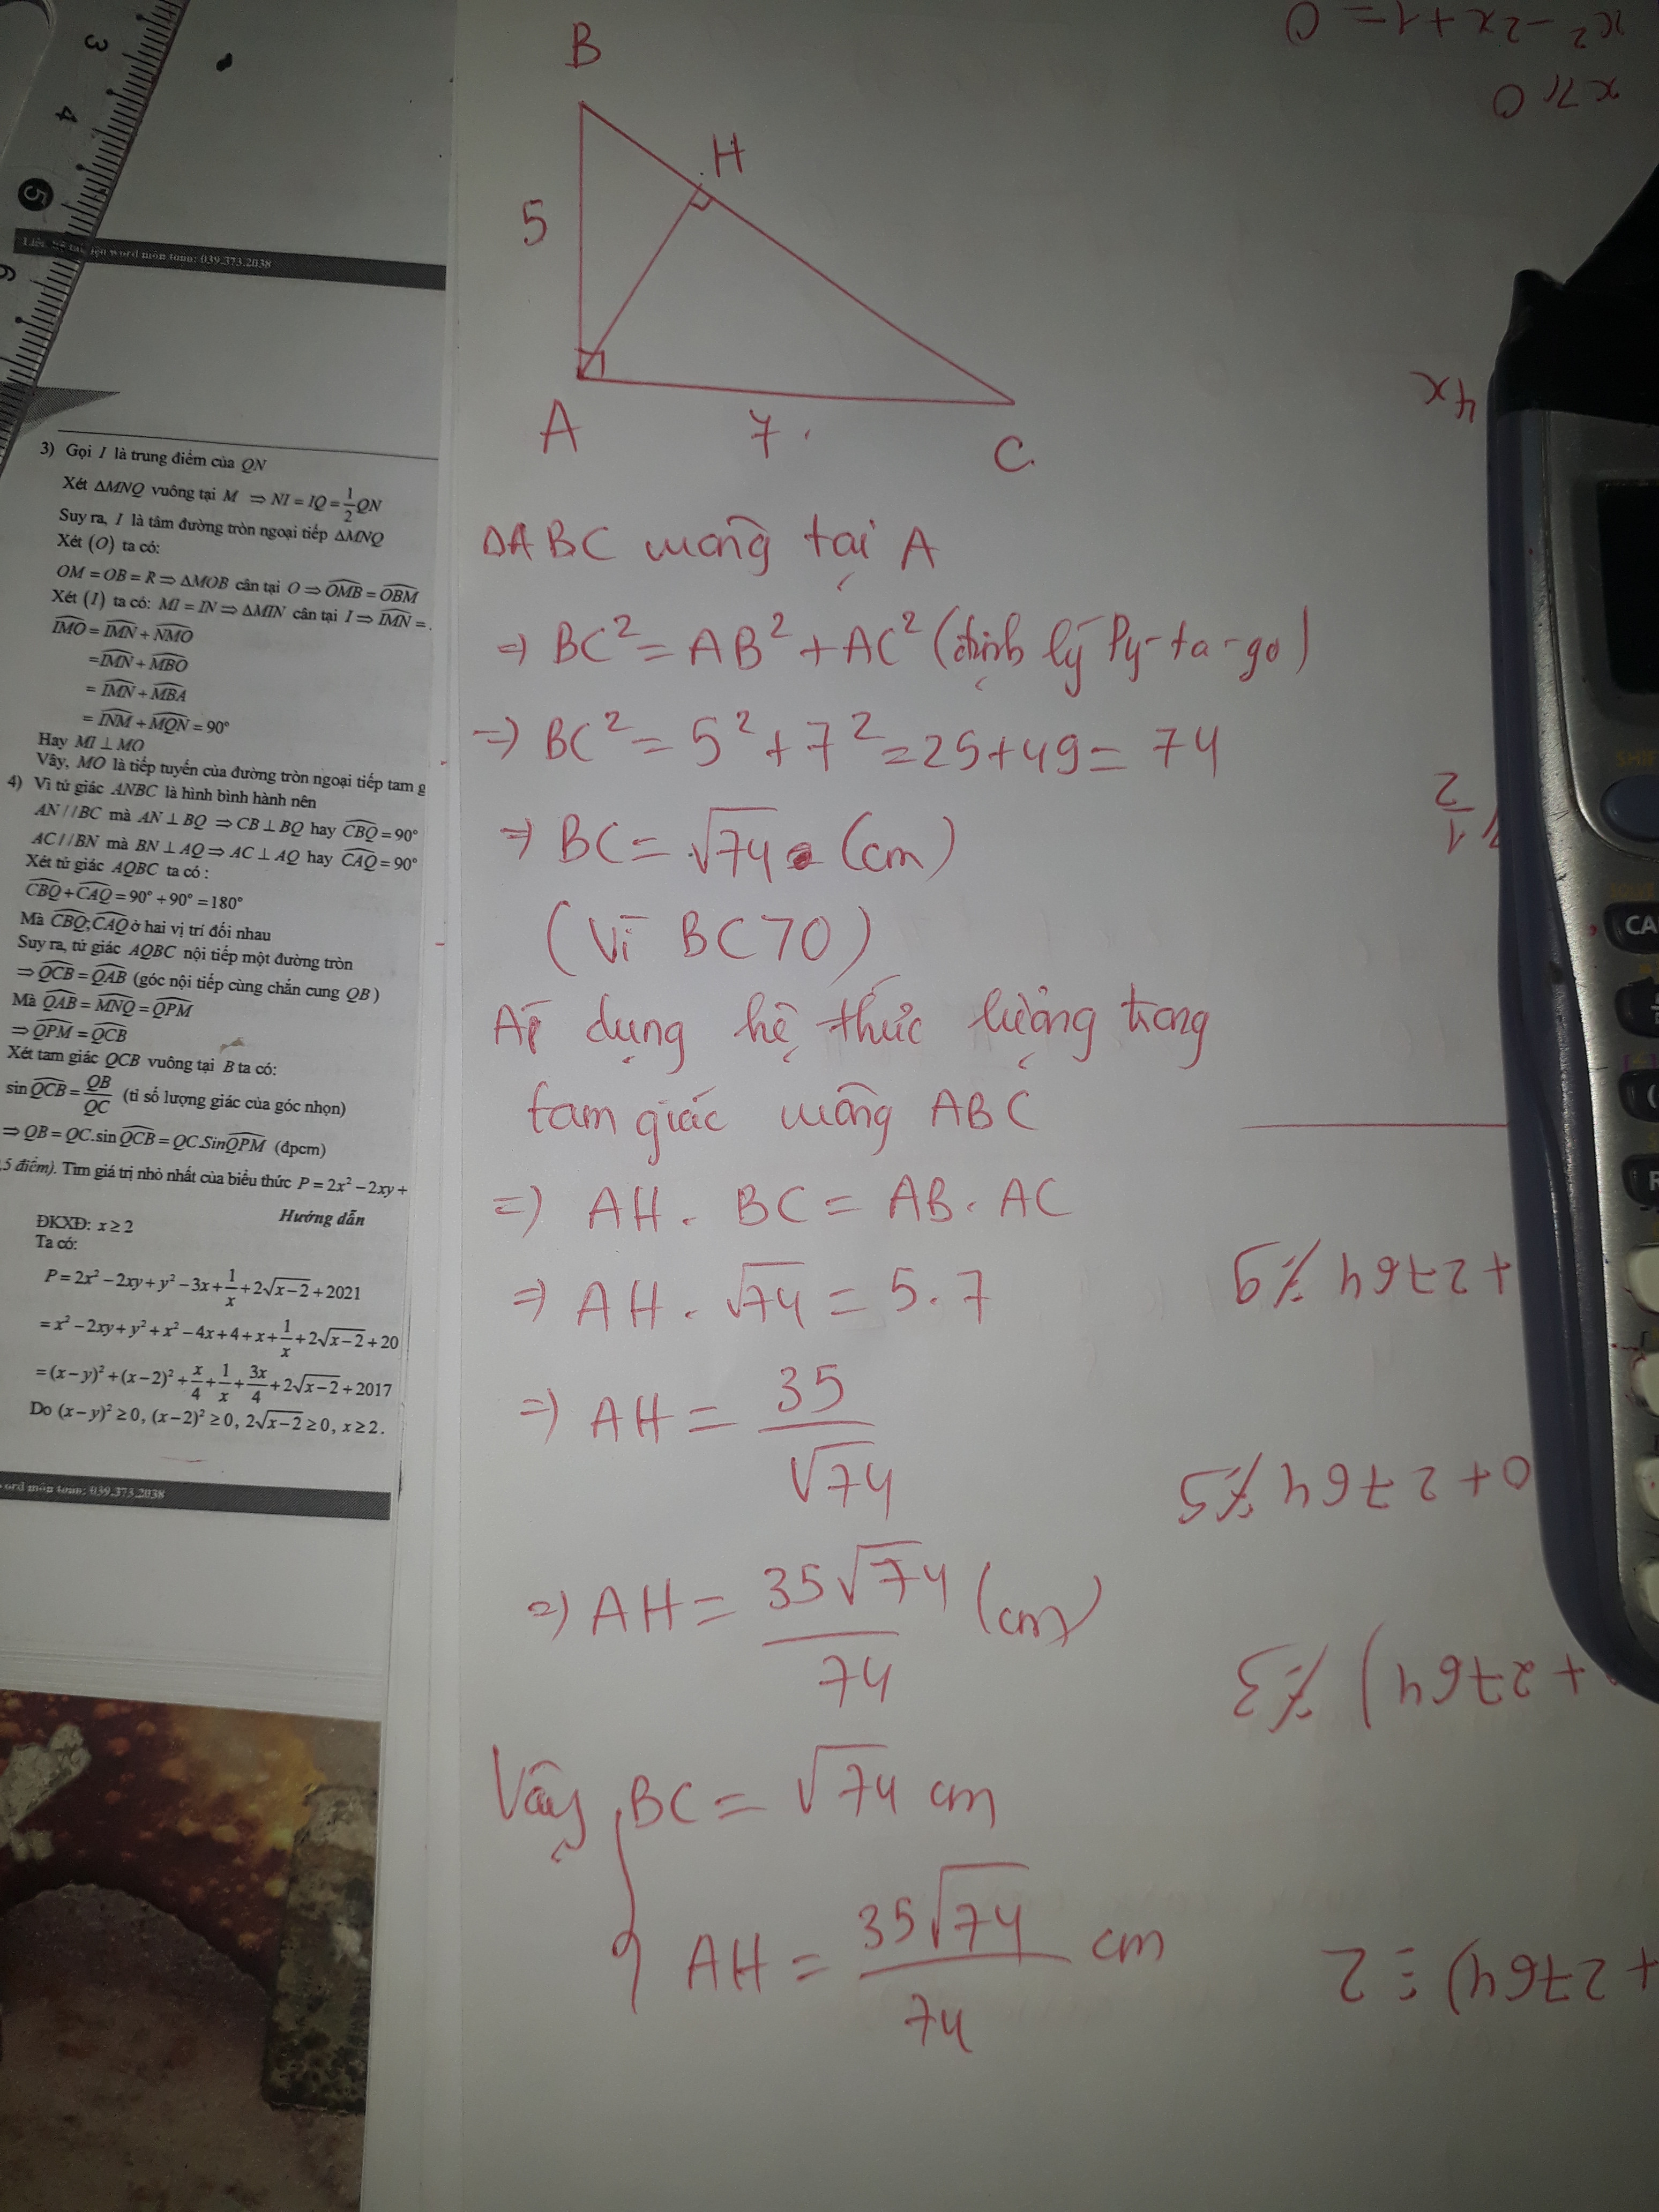 3
4
5
6
Liên hệ tài liệu word môn toán: 039.373.2038
3) Gọi I là trung điểm của QN
Xét ΔMNQ vuông tại M ⇒ NI = IQ = 1/2 QN
Suy ra, I là tâm đường tròn ngoại tiếp ΔMNQ
Xét (O) ta có:
OM = OB = R ⇒ ΔMOB cân tại O ⇒ \widehat{OMB} = \widehat{OBM}
Xét (I) ta có: MI = IN ⇒ ΔMIN cân tại I ⇒ \widehat{IMN} =
\widehat{IMO} = \widehat{IMN} + \widehat{NMO}
= \widehat{IMN} + \widehat{MBO}
= \widehat{IMN} + \widehat{MBA}
= \widehat{INM} + \widehat{MQN} = 90°
Hay MI ⊥ MO
Vậy, MO là tiếp tuyến của đường tròn ngoại tiếp tam g
4) Vì tứ giác ANBC là hình bình hành nên
AN // BC mà AN ⊥ BQ ⇒ CB ⊥ BQ hay \widehat{CBQ} = 90°
AC // BN mà BN ⊥ AQ ⇒ AC ⊥ AQ hay \widehat{CAQ} = 90°
Xét tứ giác AQBC ta có :
\widehat{CBQ} + \widehat{CAQ} = 90° + 90° = 180°
Mà \widehat{CBQ}; \widehat{CAQ} ở hai vị trí đối nhau
Suy ra, tứ giác AQBC nội tiếp một đường tròn
⇒ \widehat{QCB} = \widehat{QAB} (góc nội tiếp cùng chắn cung QB )
Mà \widehat{QAB} = \widehat{MNQ} = \widehat{QPM}
⇒ \widehat{QPM} = \widehat{QCB}
Xét tam giác QCB vuông tại B ta có:
sin \widehat{QCB} = QB/QC (tỉ số lượng giác của góc nhọn)
⇒ QB = QC.sin \widehat{QCB} = QC.Sin \widehat{QPM} (đpcm)
,5 điểm). Tìm giá trị nhỏ nhất của biểu thức P = 2x² − 2xy +
Hướng dẫn
ĐKXĐ: x ≥ 2
Ta có:
P = 2x² − 2xy + y² − 3x + 1/x + 2√(x−2) + 2021
= x² − 2xy + y² + x² − 4x + 4 + x + 1/x + 2√(x−2) + 20
= (x−y)² + (x−2)² + x/4 + 1/x + 3x/4 + 2√(x−2) + 2017
Do (x−y)² ≥ 0, (x−2)² ≥ 0, 2√(x−2) ≥ 0, x ≥ 2.
ord môn toán: 039.373.2038
B
H
5
A
7
C
ΔABC vuông tại A
⇒ BC² = AB² + AC² (định lý Py-ta-go)
⇒ BC² = 5² + 7² = 25 + 49 = 74
⇒ BC = √74 (cm)
(Vì BC > 0)
Áp dụng hệ thức lượng trong
tam giác vuông ABC
⇒ AH . BC = AB . AC
⇒ AH . √74 = 5 . 7
⇒ AH = 35/√74
⇒ AH = 35√74/74 (cm)
Vậy { BC = √74 cm
AH = 35√74/74 cm
x² − 2x + 1 = 0
x ≥ 0
4x
1/2
+ 2764 ⋮̸ 9
0 + 2764 ⋮̸ 5
+ 2764) ⋮̸ 3
+ 2764) ⋮ 2
SHIF
CA